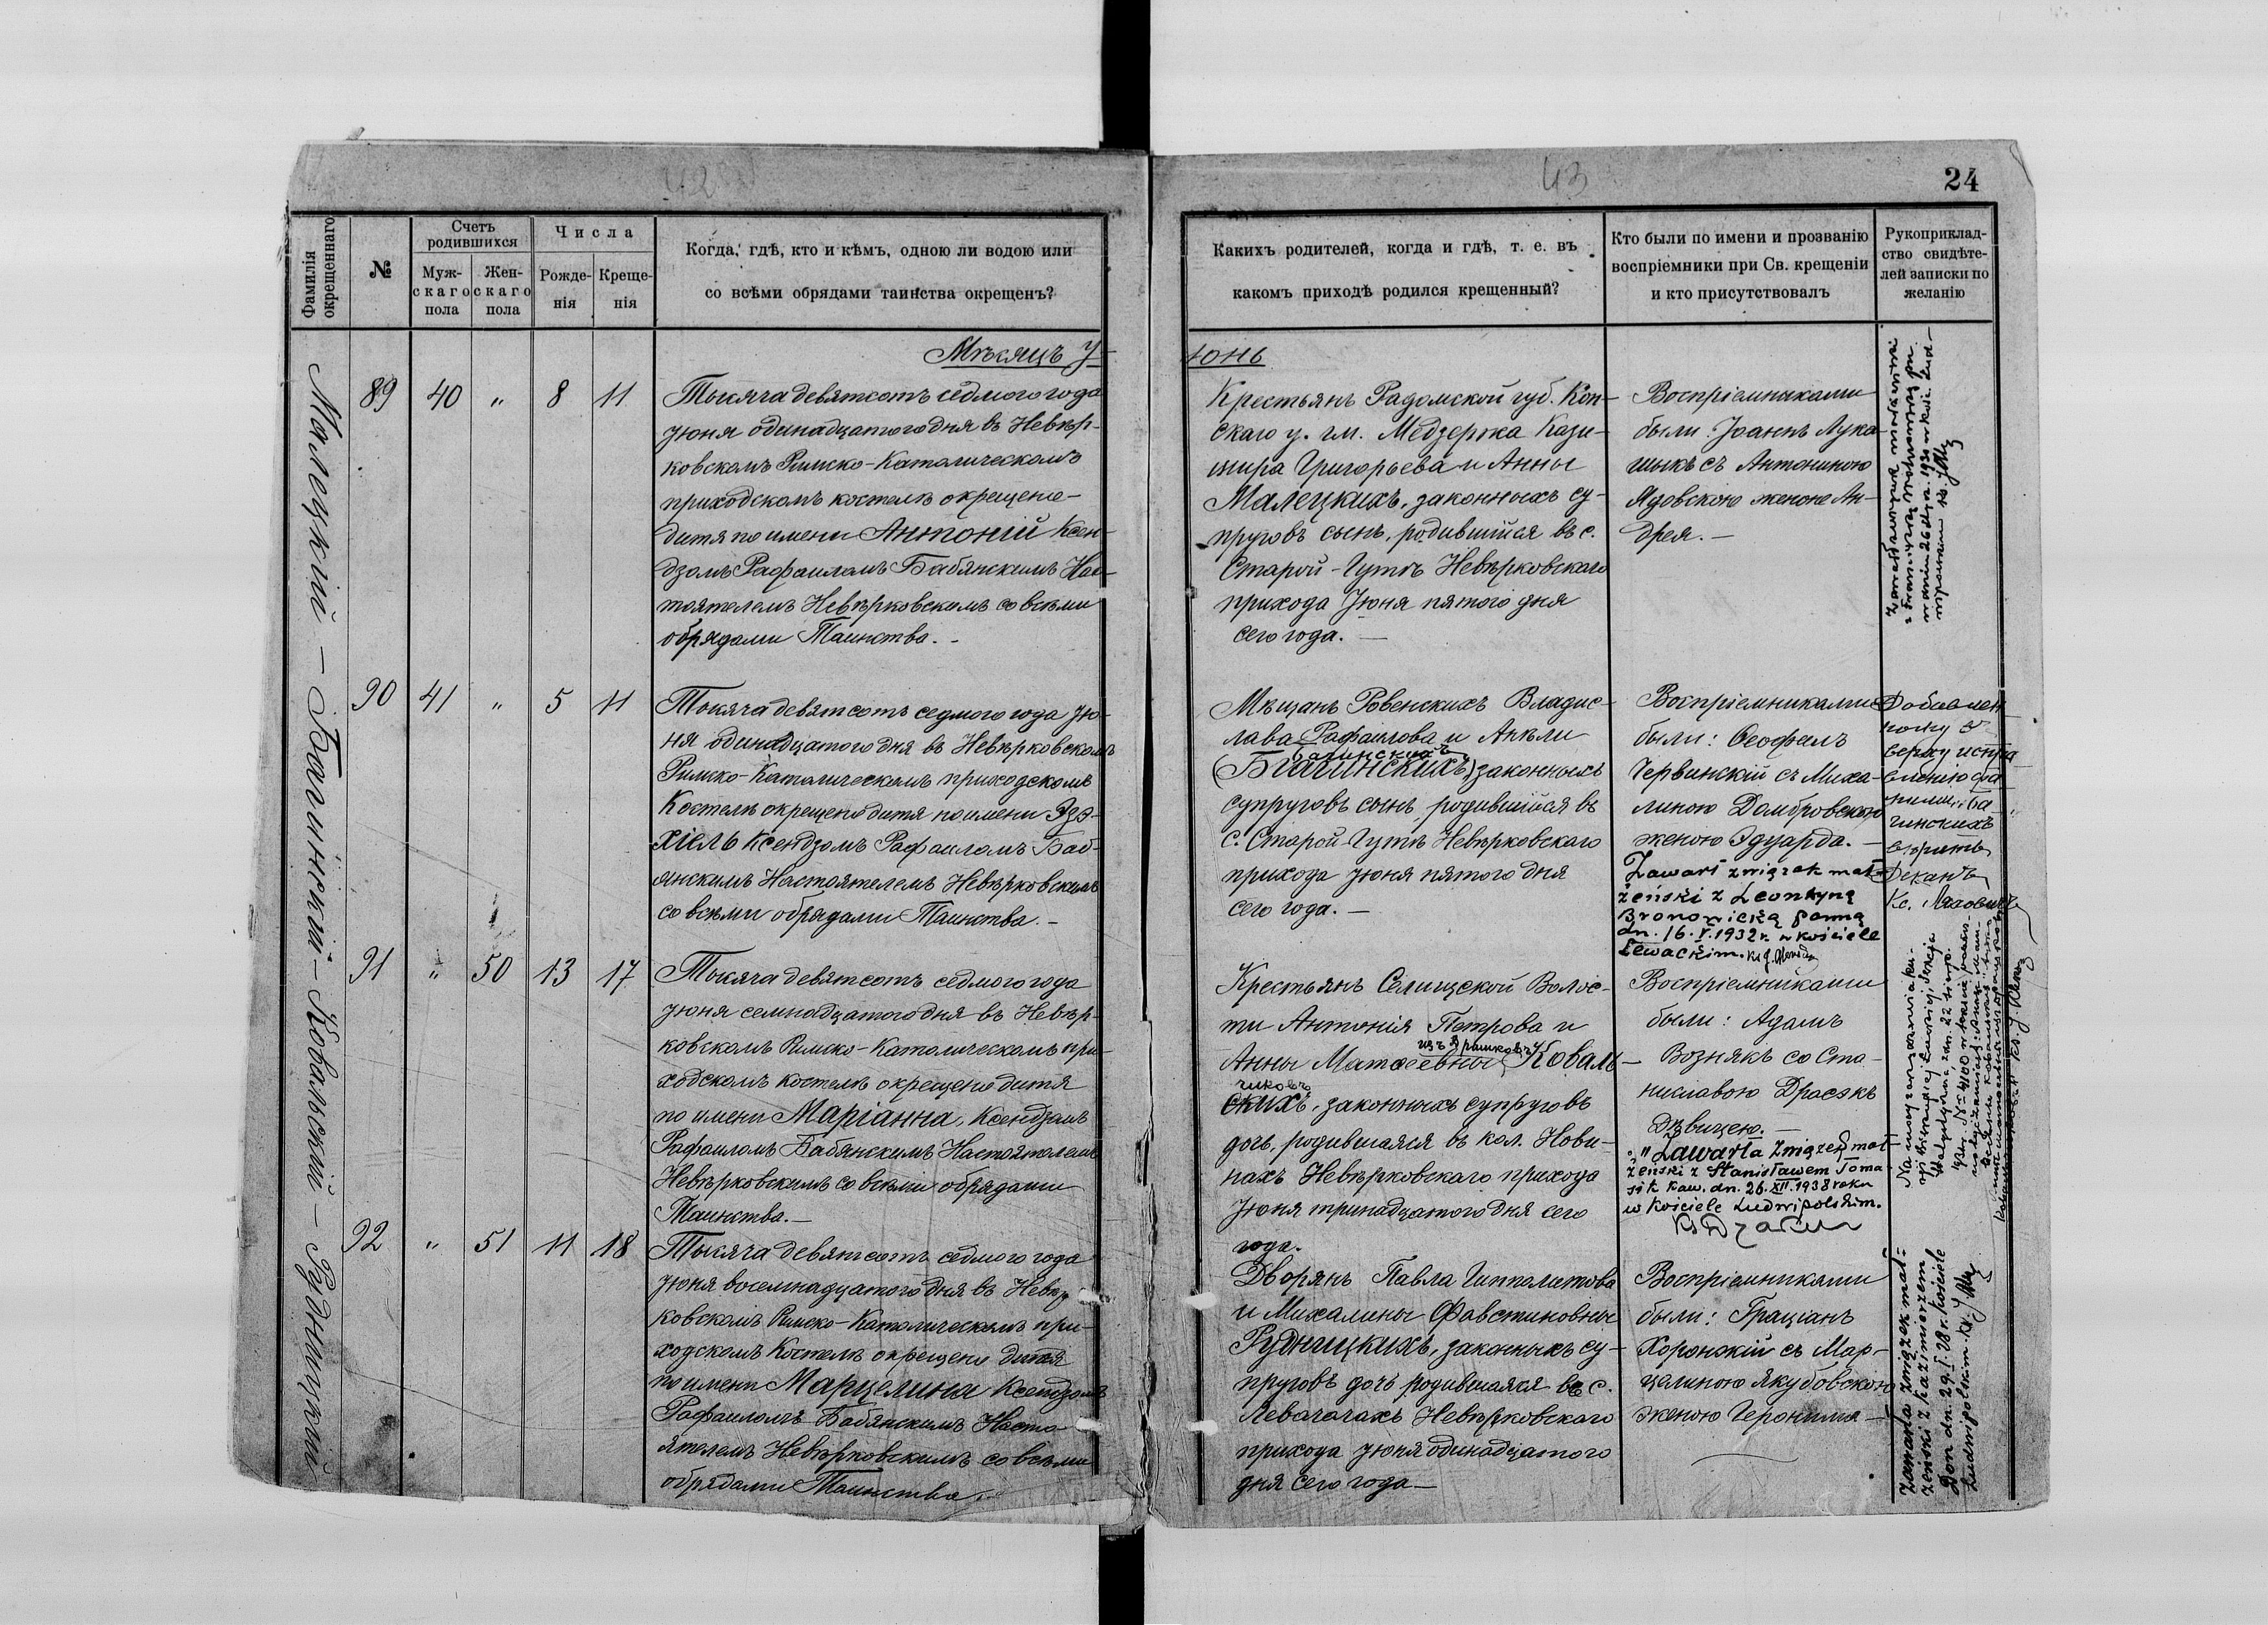 42
43
24
Фамилія
окрещеннаго
№
Счетъ
родившихся
Муж-
скаго
пола
Жен-
скаго
пола
Числа
Рожде-
нія
Креще-
нія
Когда, гдѣ, кто и кѣмъ, одною ли водою или
со всѣми обрядами таинства окрещенъ?
Какихъ родителей, когда и гдѣ, т. е. въ
какомъ приходѣ родился крещенный?
Кто были по имени и прозванію
воспріемники при Св. крещеніи
и кто присутствовалъ
Рукоприклад-
ство свидѣте-
лей записки по
желанію
Мѣсяцъ І-
юнь
Малецкій – Багинскій – Ковальскій – Рудницкій
89 40 „ 8 11
Тысяча девятсотъ седмого года
Іюня одинадцатого дня въ Невѣр-
ковскомъ Римско-Католическомъ
приходскомъ костелѣ окрещено-
дитя по имени Антоній Ксен-
дзомъ Рафаиломъ Бабянскимъ Нас-
тоятелемъ Невѣрковскимъ со всѣми
обрядами Таинства. -
Крестьянъ Радомской губ. Кон-
скаго у. гм. Медзержа Кази-
мира Григорьева и Анны
Малецкихъ, законныхъ су-
пруговъ сынъ, родившійся въ с.
Старой-Гутѣ Невѣрковскаго
прихода Іюня пятого дня
сего года. —
Воспріемниками
были Іоаннъ Лука-
шыкъ съ Антониною
Ядовскою женоне Ан-
дрея. —
90 41 „ 5 11
Тысяча девятсотъ седмого года Ію-
ня одинадцатого дня въ Невѣрковскомъ
Римско-Католическомъ приходскомъ
Костелѣ окрещено дитя по имени Эзэ-
хіель Ксендзомъ Рафаиломъ Баб-
янскимъ Настоятелемъ Невѣрковскимъ
со всѣми обрядами Таинства. -
Мѣщанъ Ровенскихъ Владис-
лава Рафаилова и Анѣли
Багинскихъ
законныхъ
супруговъ сынъ родившійся въ
с. Старой-Гутѣ Невѣрковскаго
прихода Іюня пятого дня
сего года. —
Воспріемниками
были: Ѳеофилъ
Червинскій съ Миха-
линою Домбровскою
женою Эдуарда. —
Zawarł związek mał-
żeński z Leontyną
Bronowicką panną
dn. 16. V. 1932 r. w kościele
Lewackim.
верху испра
вленію фа
миліи „Ба-
гинскихъ
вѣритъ
Деканъ
91 „ 50 13 17
Тысяча девятсотъ седмого года
Іюня семнадцатого дня въ Невѣр-
ковскомъ Римско-Католическомъ при-
ходскомъ костелѣ окрещено дитя
по имени Маріанна, Ксендзомъ
Рафаиломъ Бабянскимъ Настоятелемъ
Невѣрковскимъ со всѣми обрядами
Таинства. —
Крестьянъ Селищской Волос-
ти Антонія Петрова и
Анны Матвеевны Коваль-
чиковъ
скихъ, законныхъ супруговъ
дочь, родившаяся въ кол. Нови-
нахъ Невѣрковскаго прихода
Іюня тринадцатого дня сего
года.
Воспріемниками
были: Адамъ
Вознякъ со Ста-
ниславою Драсэкъ
Дѣвицею. —
Zawarła związek mał-
żeński z Stanisławem Toma-
sik kaw. dn. 26. XII. 1938 roku
w kościele Ludwipolskim.
92 „ 51 11 18
Тысяча девятсотъ седмого года
Іюня восемнадцатого дня въ Невѣр
ковскомъ Римско-Католическомъ при-
ходскомъ Костелѣ окрещено дитя
по имени Марцелина Ксендзомъ
Рафаиломъ Бабянскимъ Насто-
ятелемъ Невѣрковскимъ со всѣми
обрядами Таинства. -
Дворянъ Павла Ипполитова
и Михалины Фавстиновны
Рудницкихъ, законныхъ су-
пруговъ дочь родившаяся въ с.
Левачахъ Невѣрковскаго
прихода Іюня одинадцатого
дня сего года —
Воспріемниками
были: Граціанъ
Хоронжій съ Мар-
целиною Якубовскою
женою Героніма —
Zawarła związek mał-
żeński z Kazimierzem
dn. 29. I. 28 r. kościele
Ludwipolskim.